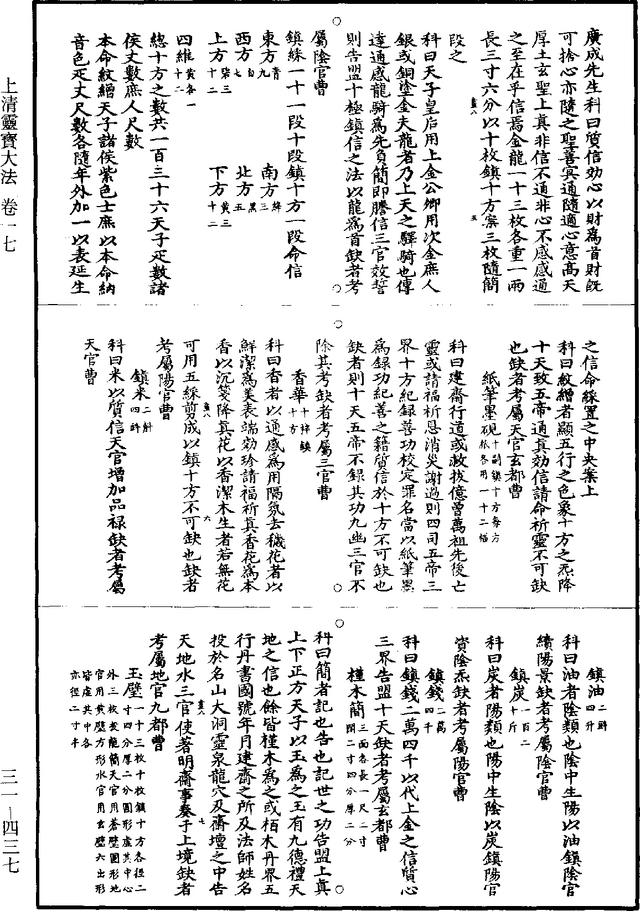 上清靈寶大法　卷一七
三一—四三七
廣成先生科曰質信効心以財為首財既
可捨心亦隨之聖善冥通隨適心意高天
厚土玄聖上真非信不通非心不感感通
之至在乎信焉金龍一十三枚各重一兩
長三寸六分以十枚鎮十方案三枚隨簡
段之
科曰天子皇后用上金公卿用次金庶人
銀或銅塗金夫龍者乃上天之驛騎也傳
達通感龍騎為先負簡即騰信三官效誓
則告盟十極鎮信之法以龍為首缺者考
屬陰官曹
鎮綵一十一段十段鎮十方一段命信
東方青九　南方絳三
西方白七　北方黑五
上方碧三十二　下方黃三十二
四維黃各一十二
總十方之數共一百三十六天子疋數諸
侯丈數庶人尺數
本命紋繒天子諸侯紫色士庶以本命納
音色疋丈尺數各隨年外加一以表延生
之信命綵置之中央案上
科曰紋繒者顯五行之色象十方之炁降
十天致五帝通真効信請命祈靈不可缺
也缺者考屬天官玄都曹
紙筆墨硯十副鎮十方每方紙各用一十二幅
科曰建齋行道或救拔億曾萬祖先後亡
靈或請福祈恩消災謝過則四司五帝三
界十方紀録善功校定罪名當以紙筆墨
為録功紀善之籍質信於十方不可缺也
缺者則十天五帝不録其功九幽三官不
除其考缺者考屬三官曹
香華十捧鎮十方
科曰香者以通感為用隔氛去穢花者以
鮮潔為美表端効珍請福祈真香花為本
香以沉箋降真花以香潔木生者若無花
可用五綵剪成以鎮十方不可缺也缺者
考屬陽官曹
鎮米二斛四㪷
科曰米以質信天官增加品祿缺者考屬
天官曹
鎮油二㪷四升
科曰油者陰類也陰中生陽以油鎮陰官
續陽景缺者考屬陰官曹
鎮炭一百二十斤
科曰炭者陽類也陽中生陰以炭鎮陽官
資陰炁缺者考屬陽官曹
鎮錢二萬四千
科曰鎮錢二萬四千以代上金之信質心
三界告盟十天缺者考屬玄都曹
槿木簡三面各長一尺二寸闊二寸四分厚二分
科曰簡者記也告也記世之功告盟上真
上下正方天子以玉為之玉有九德禮天
地之信也餘皆槿木為之或栢木丹界五
行丹書國號年月建齋之所及法師姓名
投於名山大洞靈泉龍穴及齋壇之中告
天地水三官使著明齋事奏于上境缺者
考屬地官九都曹
玉璧一十三枚十枚鎮十方各徑二寸四分厚二分圓形虛其中心外三枚投龍簡天官用蒼璧圓形地官用黃璧方形水官用玄璧六出形皆虛其中各亦徑二寸半